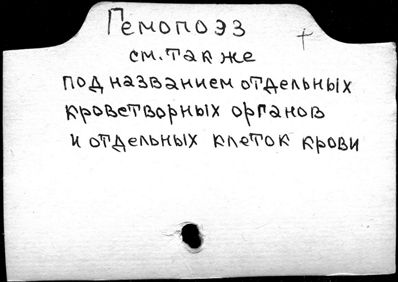 Гемопоэз
см. также
под названием отдельных
кроветворных органов
и отдельных клеток крови